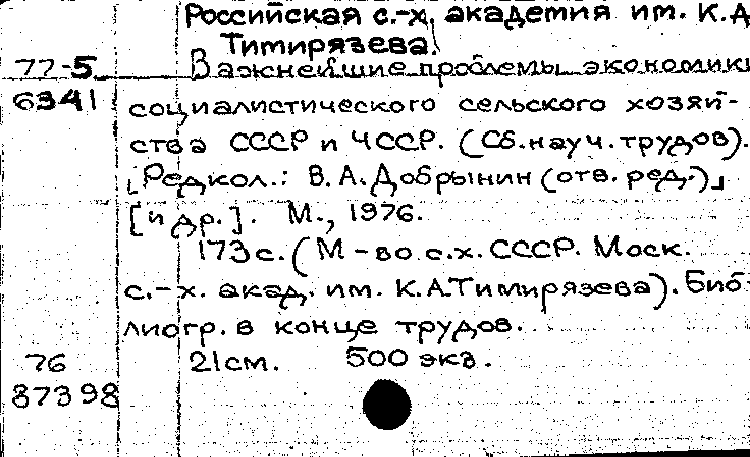 Российская с.-х. академия им. К.А
Тимирязева.
77-5 Важнейшие проблемы экономики
6341 социалистического сельского хозяй-
ства СССР и ЧССР. (Сб. науч. трудов).
[Редкол.: В. А. Добрынин (отв. ред.)]
[и др.]. М., 1976.
173 с. (М-во с.х. СССР. Моск.
с.-х. акад. им. К.А. Тимирязева). Биб-
лиогр. в конце трудов.
76 21 см. 500 экз.
87398